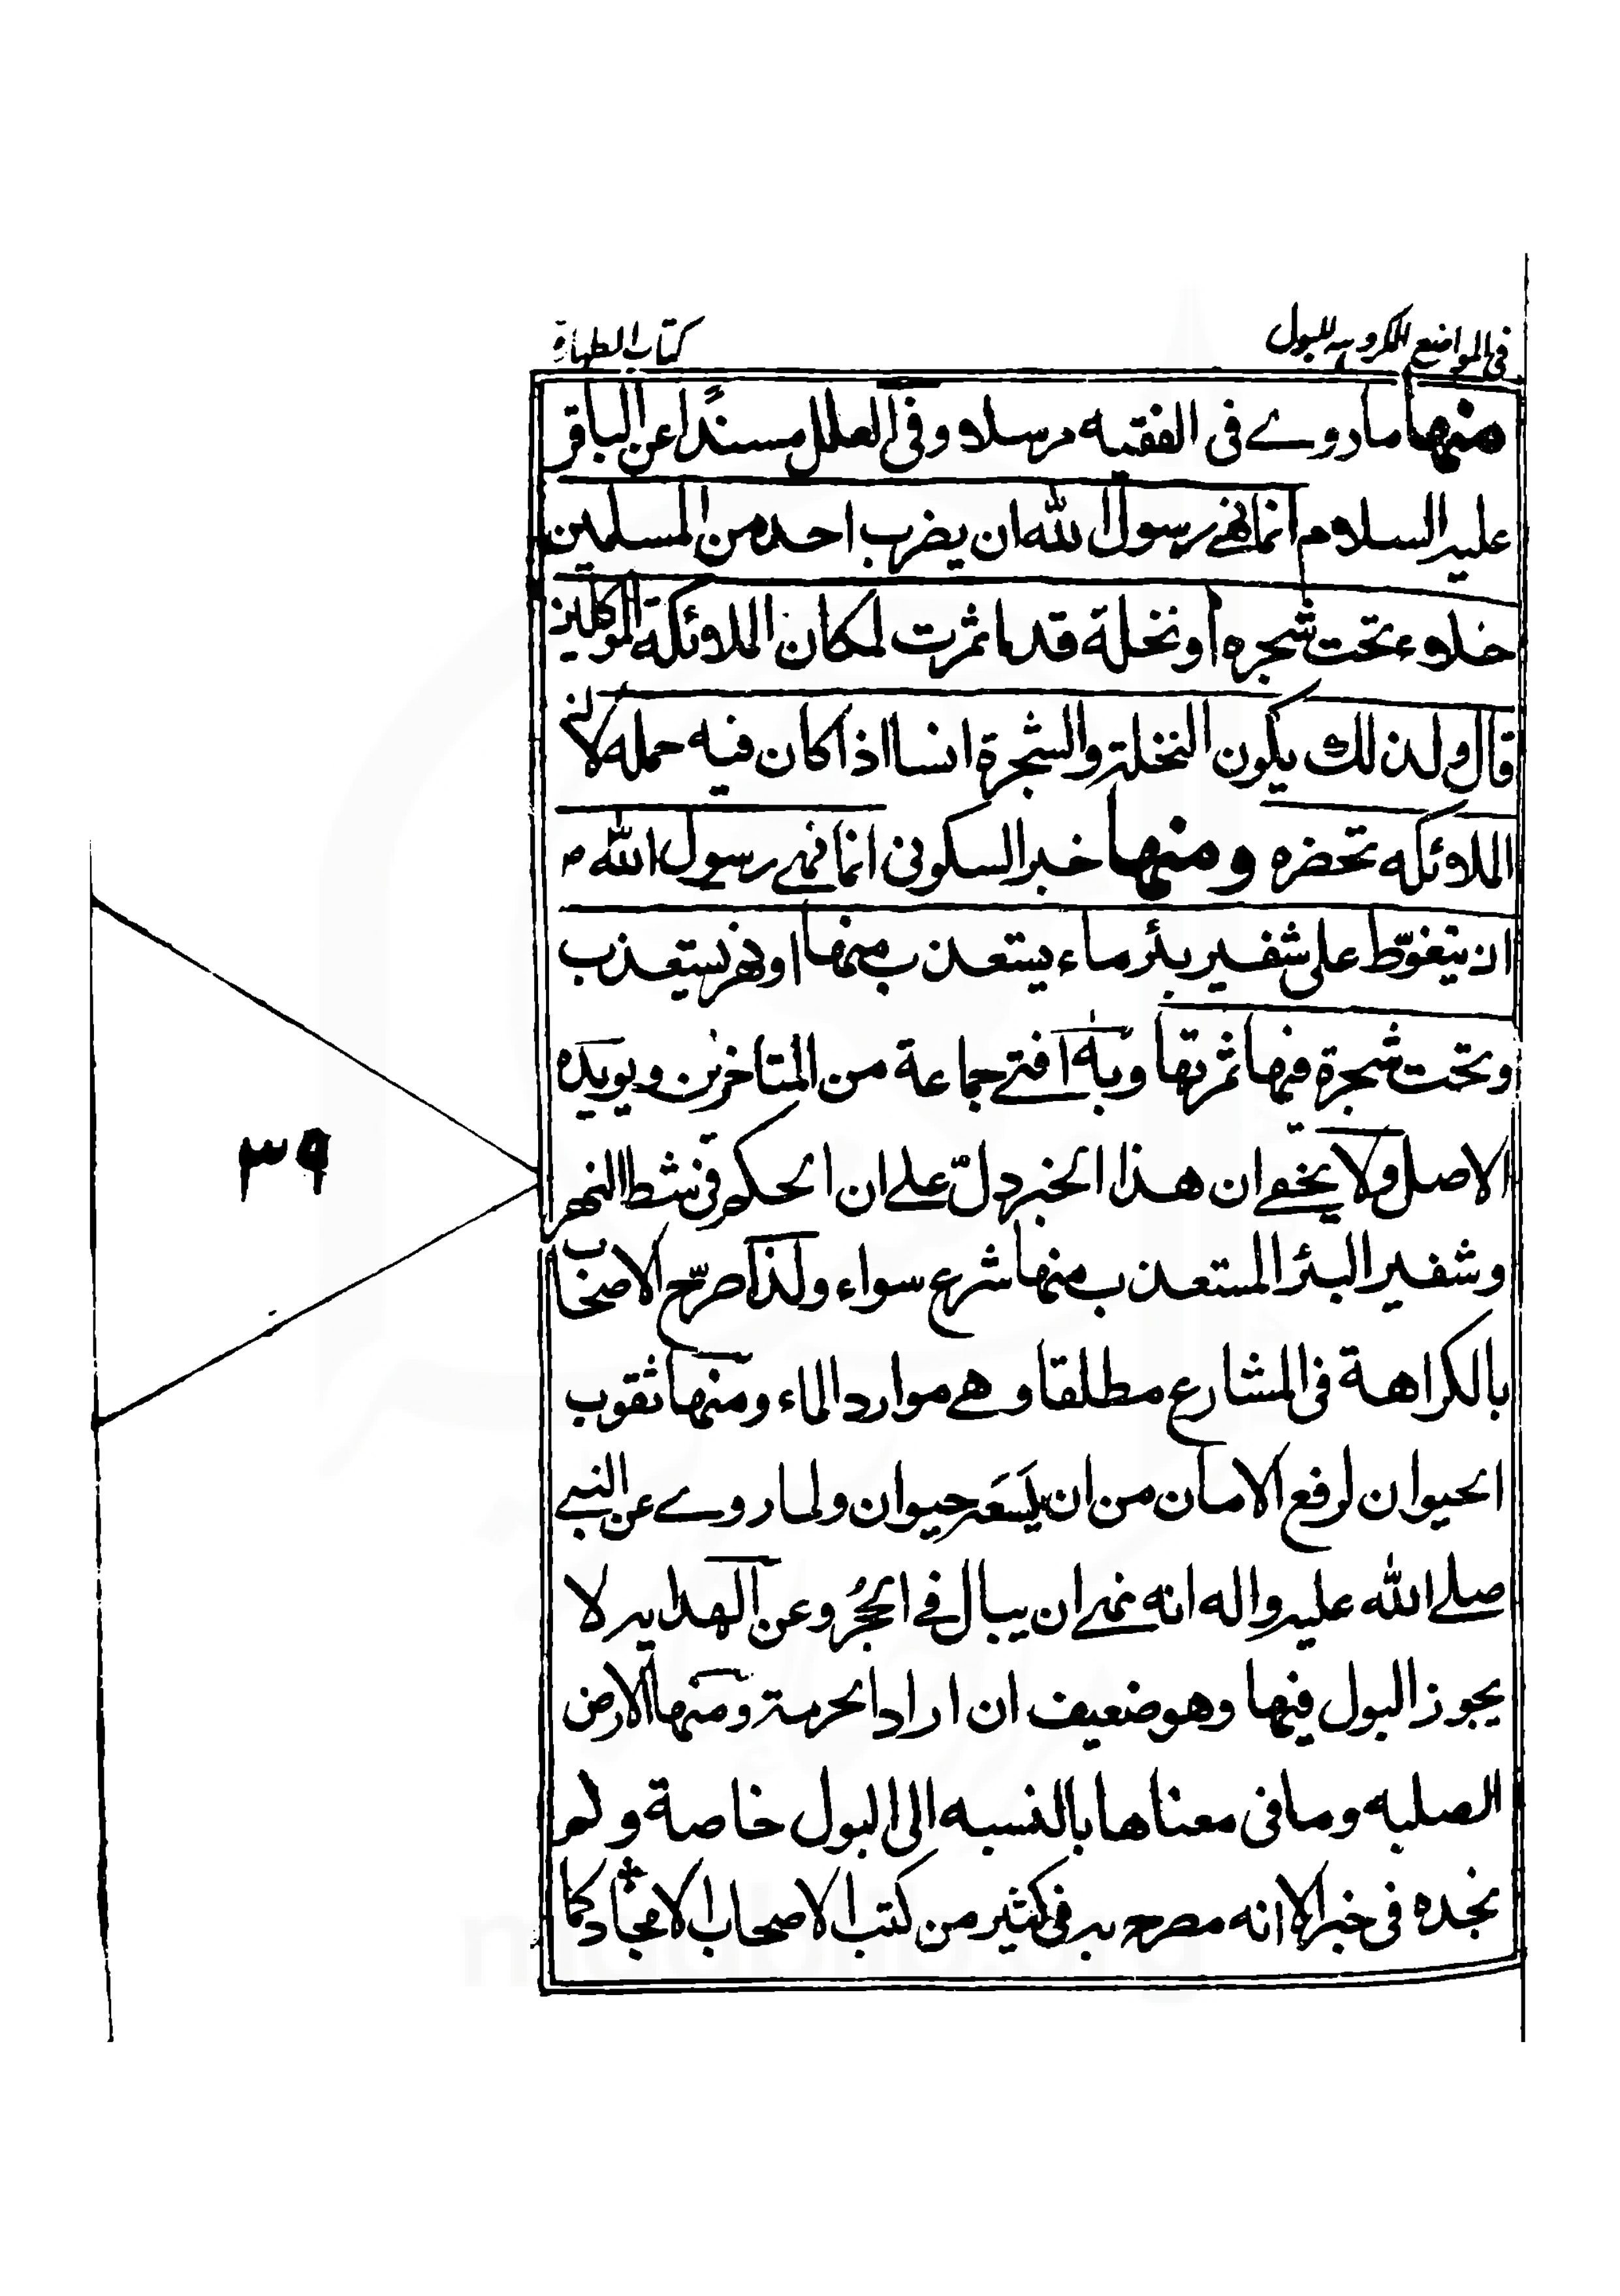 في المواضع المكروهه للبول
كتاب الطهارة
منها ما روے فى الفقيه مرسلا وفى العلل مسندًا عن الباقر
عليه السلام انما نهى رسول الله ان يضرب احد من المسلمين
خلاء تحت شجره او نخلة قد اثمرت لمكان الملائكة الموكلين
قال ولذلك يكون النخلة والشجرة انسا اذا كان فيه حمله لان
الملائكه تحضره ومنها خبر السكونى انما نهى رسول الله ص
ان يتغوّط على شفير بئر ماء يستعذب منها او نهر يستعذب
وتحت شجرة فيها ثمرتها وبه افتى جماعة من المتاخرين ويويده
الاصل ولا يخفى ان هذا الخبر دلّ على ان الحكم فى شط النهر
وشفير البئر المستعذب منها شرع سواء ولذا صرّح الاصحاب
بالكراهة فى المشارع مطلقا وهى موارد الماء ومنها ثقوب
الحيوان لرفع الامان من ان يَسَعَه حيوان ولما روے عن النبى
صلى الله عليه واله انه نهى ان يبال فى الجُحُر وعن الهدايه لا
يجوز البول فيها وهو ضعيف ان اراد الحرمة ومنها الارض
الصلبه وما فى معناها بالنسبه الى البول خاصة ولم
نجده فى خبر الا انه مصرح به فى كثير من كتب الاصحاب الامجاد كما
٣٩